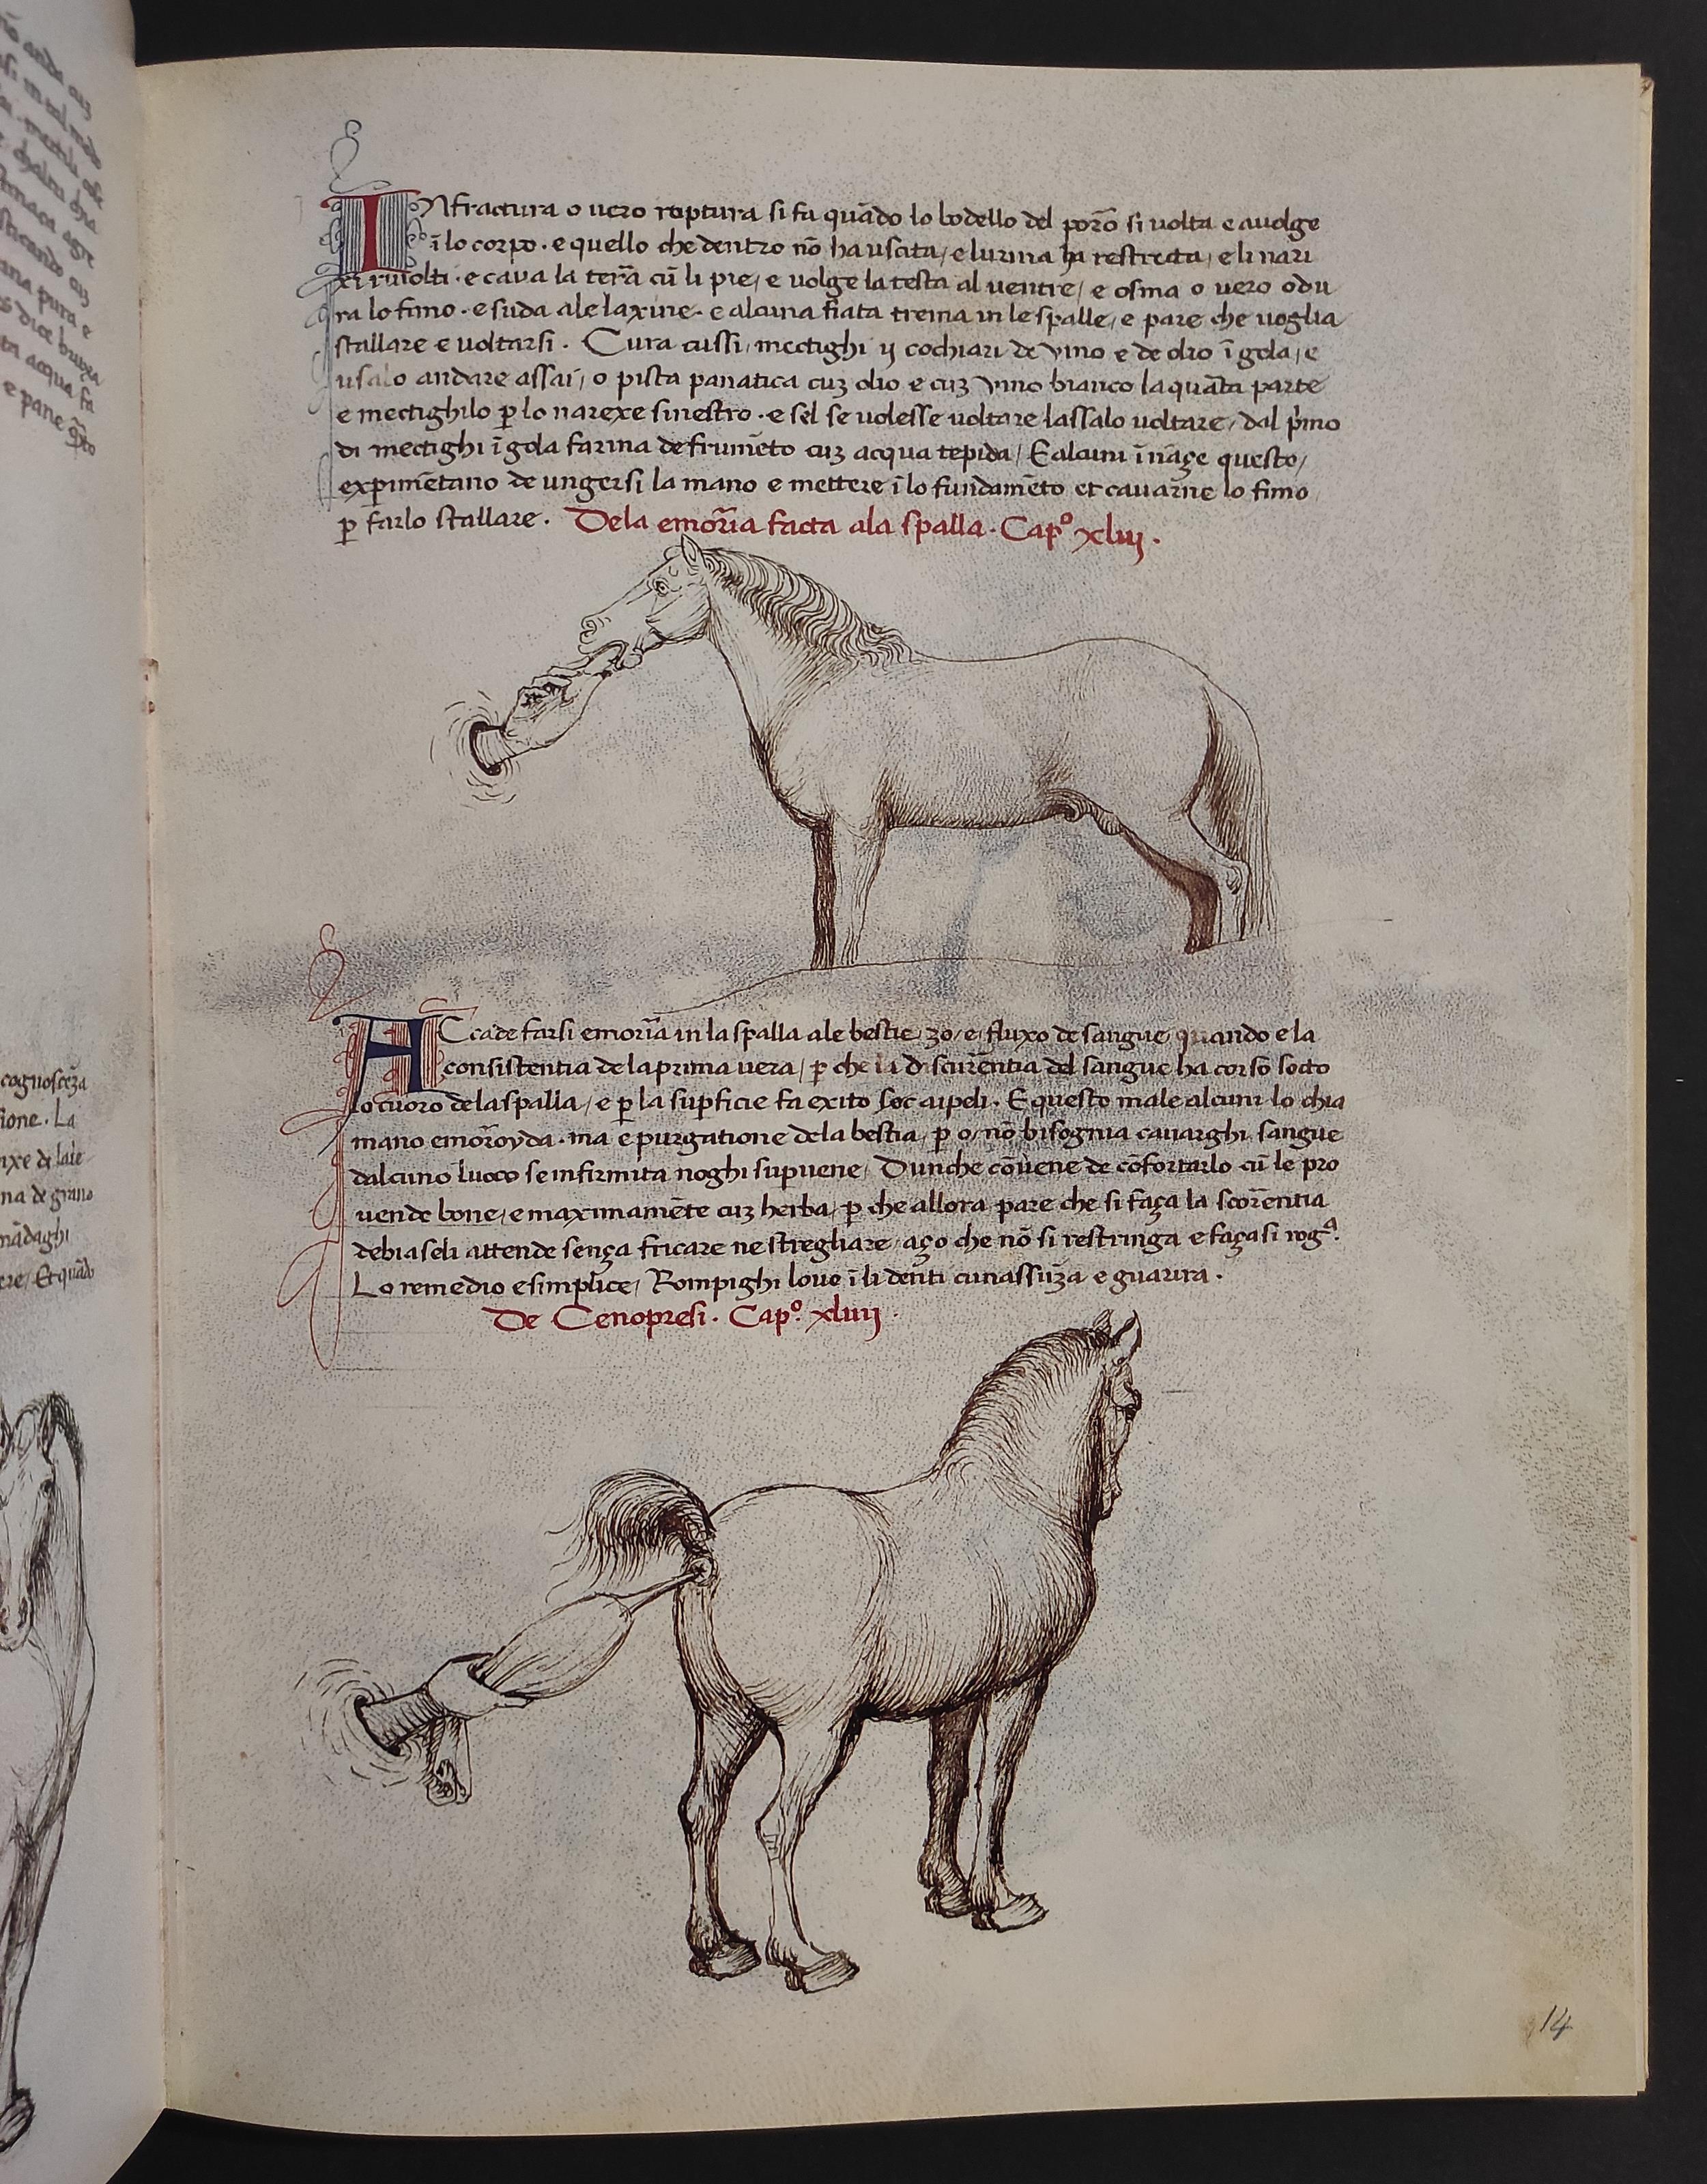 INfractura o vero roptura si fa quãdo lo bodello del porõ si volta e auolge
ĩ lo corpo · e quello che dentro nõ ha uscita / e lurina ha restrecta / e li nari
xi riuolti · e caua la terã cũ li pie / e volge la testa al ventre / e osma o uero odu
ra lo fimo · e suda a le laxine · e alcuna fiata trema in le spalle / e pare che uoglia
stallare e uoltarsi · Cura cussi / mectighi ij cochiari de vino e de olio ĩ gola / e
usalo andare assai / o pista panatica cuȝ olio e cuȝ vino bianco la quãta parte
e mectighilo ꝑ lo narexe sinestro · e sel se uolesse uoltare lassalo uoltare / dal pĩmo
di mectighi ĩ gola farina de frumẽto cuȝ acqua tepida / E alcuni ĩnãçe questo /
experimẽtano de ungersi la mano e mettere ĩ lo fundamẽto et cauarne lo fimo
ꝑ farlo stallare · Dela emorĩa facta ala spalla · Capº xliij ·
ACcade farsi emorĩa in la spalla ale bestie ȝo / e / fluxo de sangue quando e la
consistentia de la prima uera / ꝑ che la discurẽntia del sangue ha corso socto
lo cuoro de la spalla / e ꝑ la suꝑficie fa exito soc ai peli · E questo male alcuni lo chia
mano emorõyda · ma e purgatione de la bestia / ꝑ o / nõ bisogna cauarghi sangue
dalcuno luoco se infirmita noghi supuene / Dunche cõuene de cõfortarlo cũ le pro
uende bone / e maximamẽte cuȝ herba / ꝑ che allora pare che si faça la scorẽntia
debiaseli attende sença fricare ne stregliare / aço che nõ si restringa e façasi rogª.
Lo remedio e simplice / Rompighi louo ĩ li dẽnti cunassũȝa e guarira ·
De Cenopresi · Capº. xliiij ·
14
cognoscẽȝa
ione · La
na de grano
mãdaghi
ere / Et quãdo